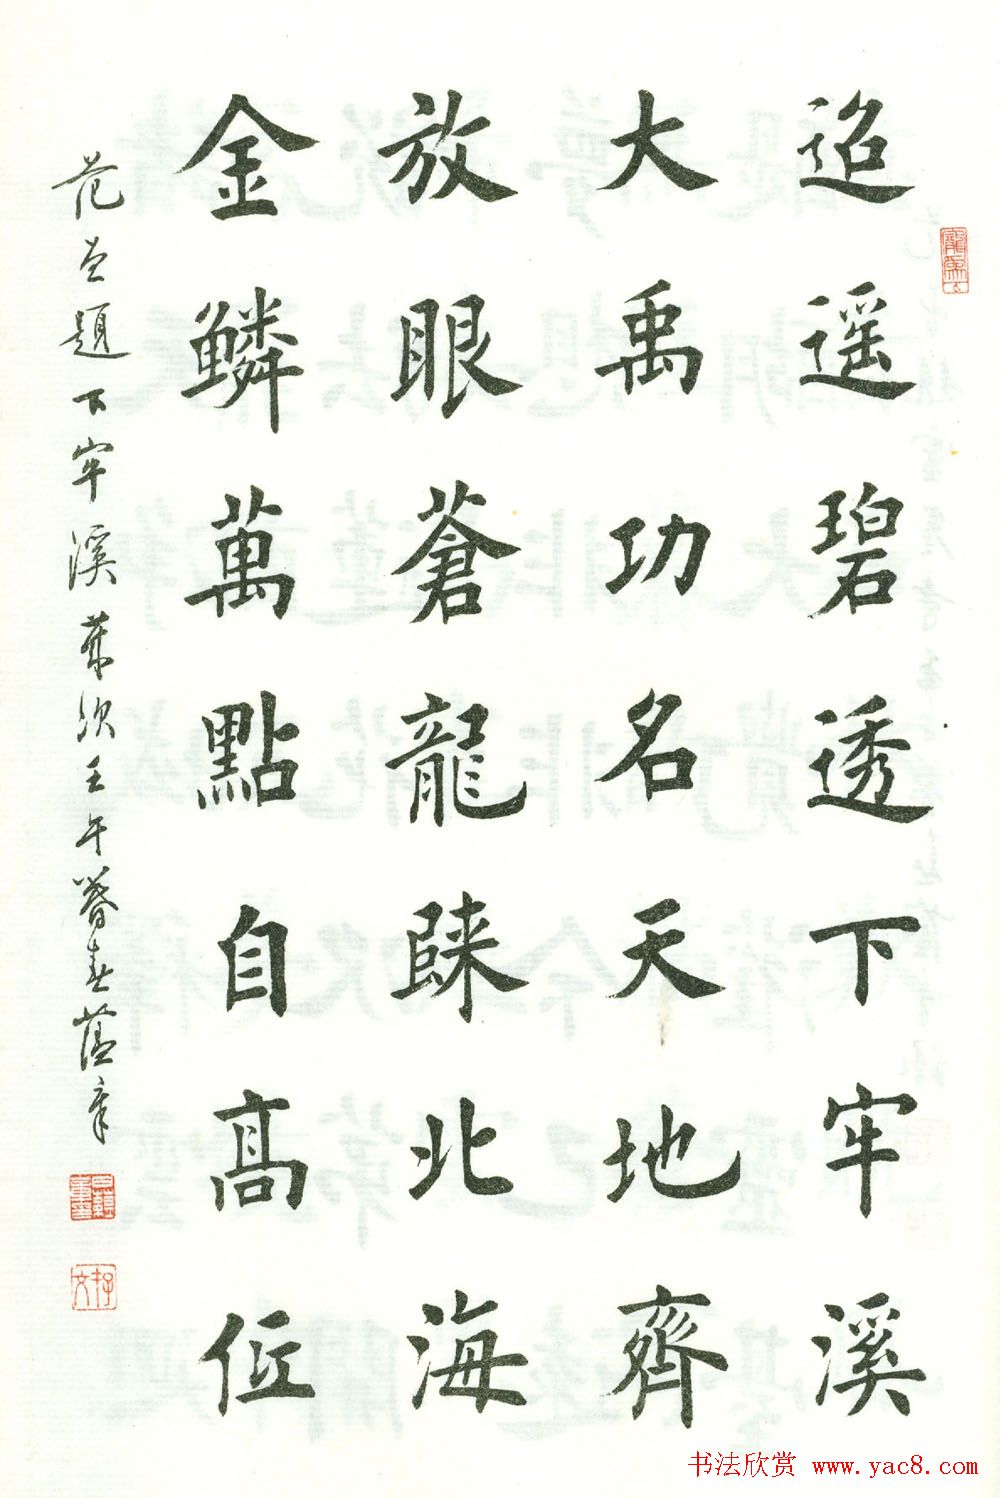 迢遥碧透下牢溪
大禹功名天地齊
放眼蒼龍睐北海
金鱗萬點自高低
范題下牢溪歲次壬午暮春蕴章
书法欣赏 www.yac8.com